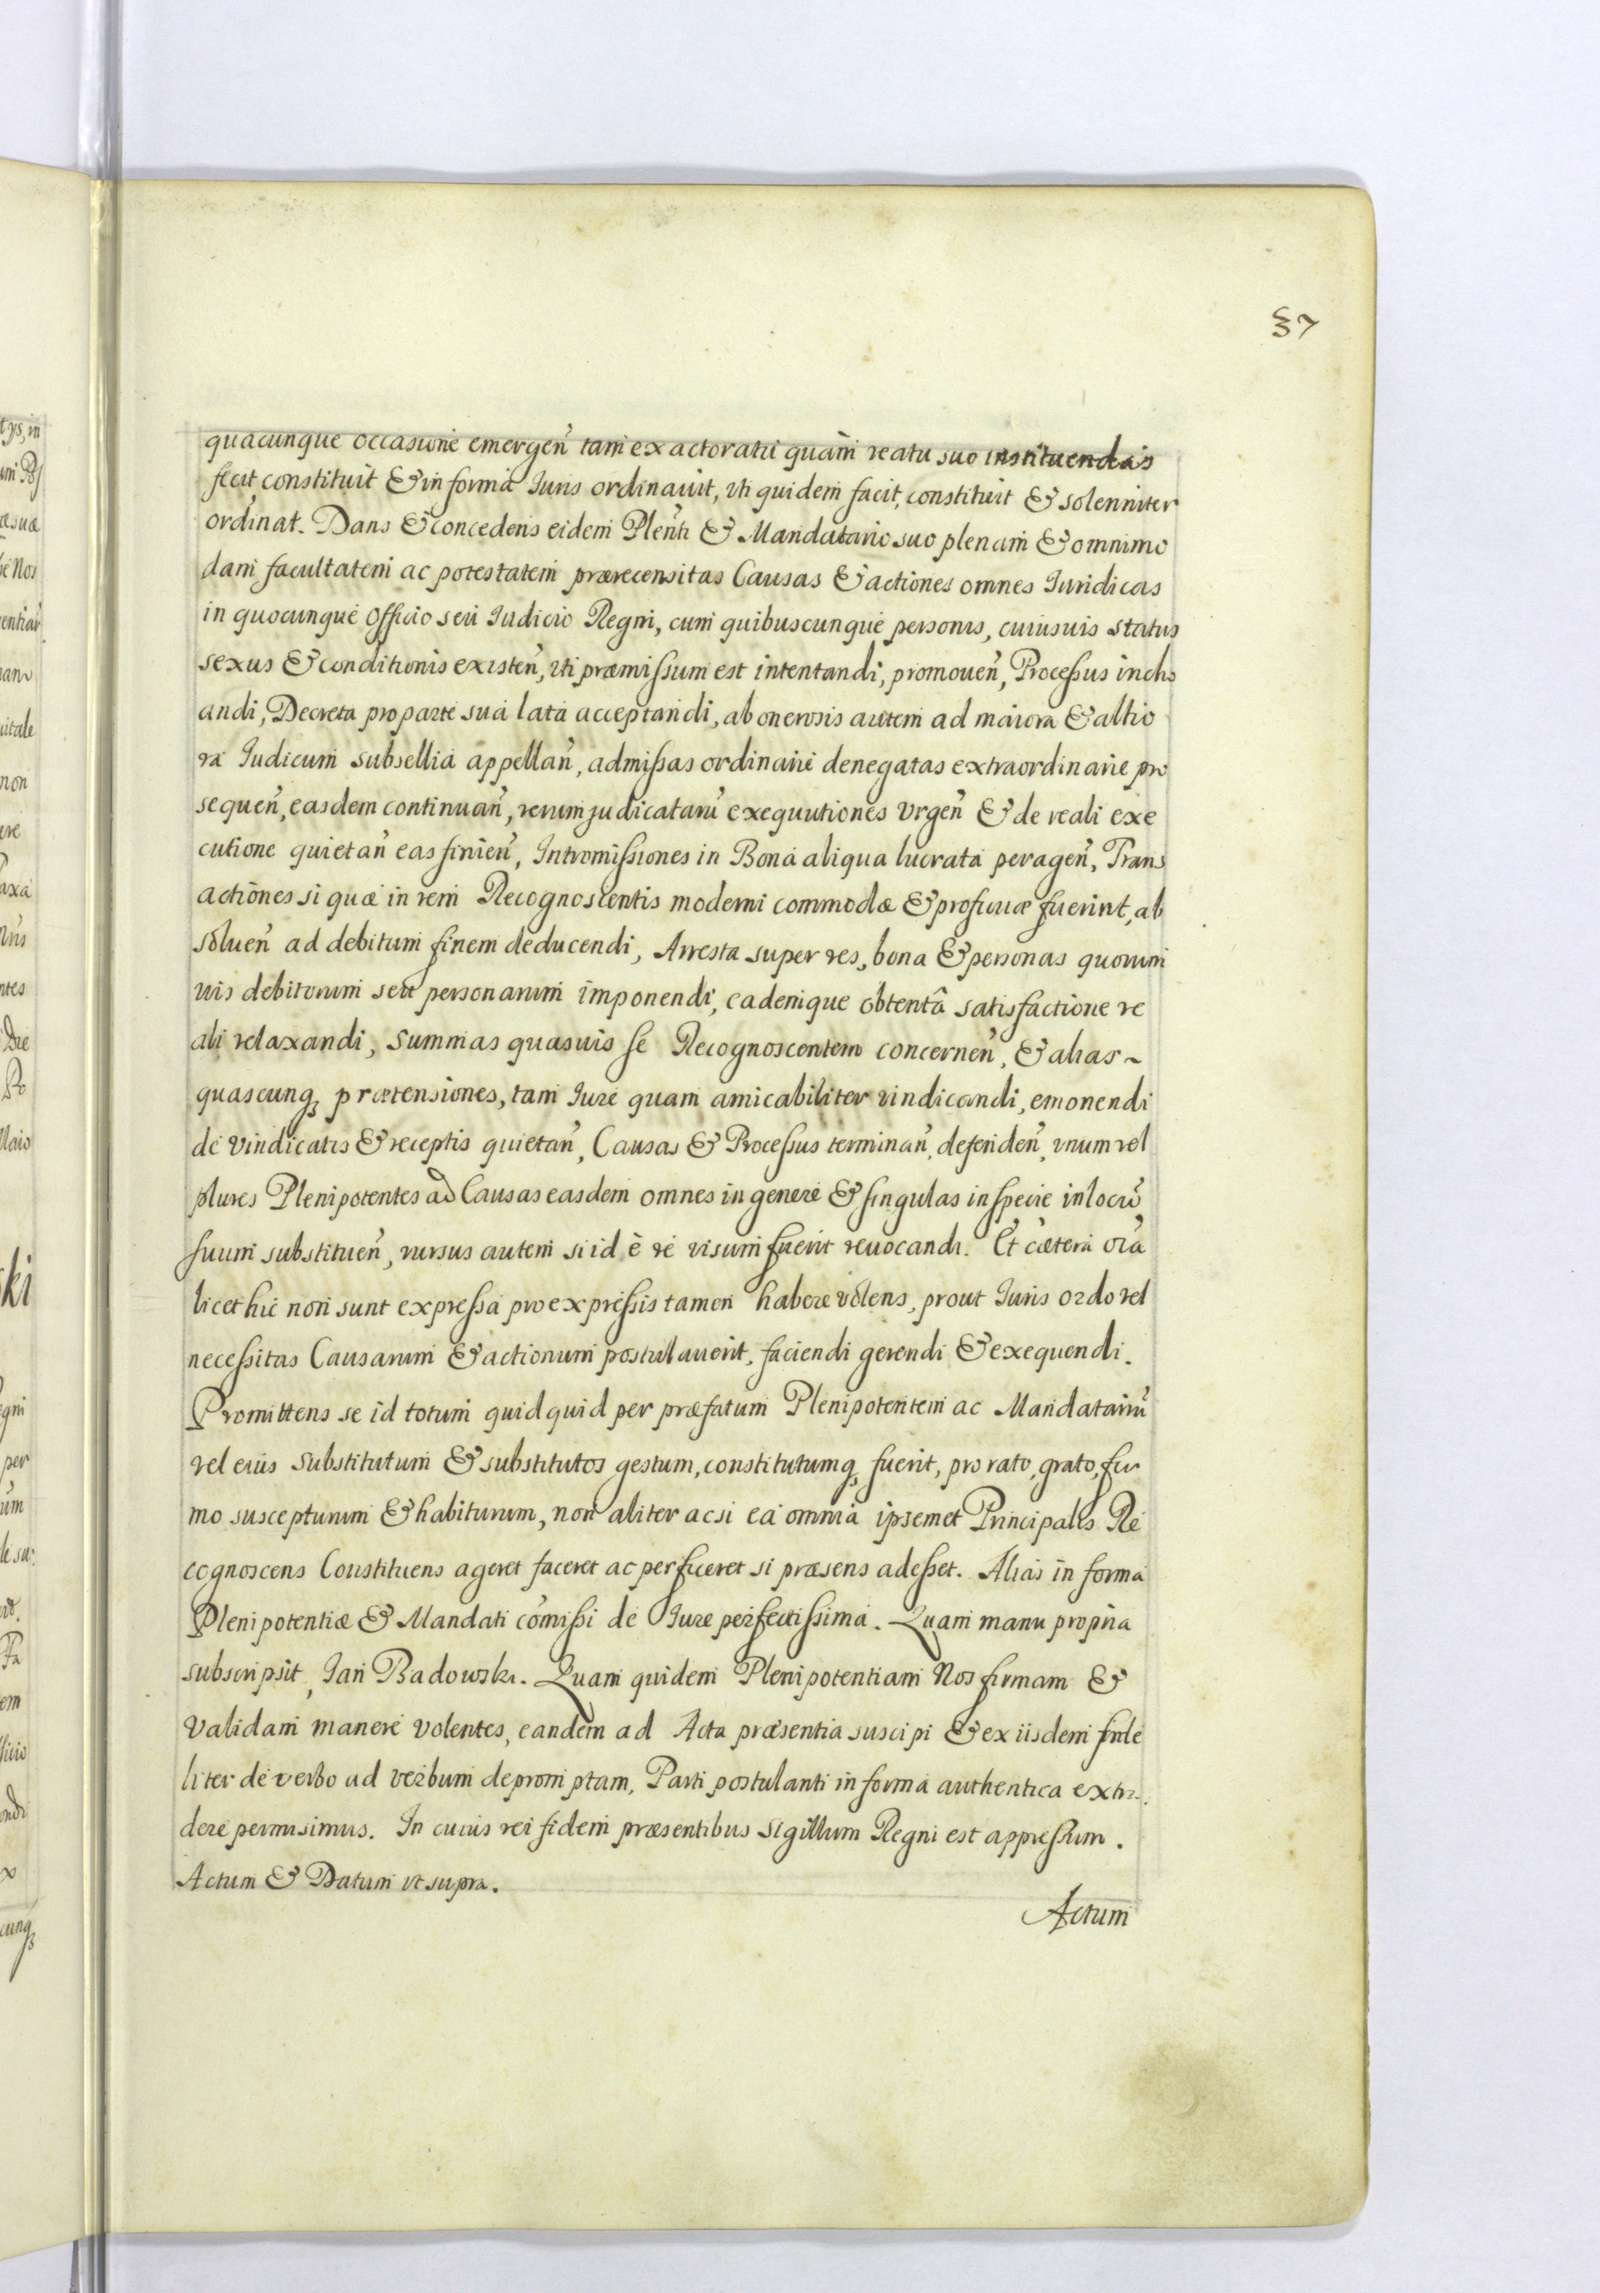 37
quacunque occasione emergen̄ tam ex actoratu quàm reatu suo instituendas
fecit constituit & in forma Iuris ordinauit, vti quidem facit, constituit & solenniter
ordinat. Dans & Concedens eidem Plen̄ti & Mandatario suo plenam & omnimo
dam facultatem ac potestatem præcensitas Causas & actiones omnes Iuridicas
in quocunque Officio seu Iudicio Regni, cum quibuscunque personis, cuiusuis status
sexus & conditionis existen̄, vti præmissum est intentandi, promouen̄, Processus incho
andi, Decreta pro parte sua lata acceptandi, ab onerosis autem ad maiora & altio
ra Iudicum subsellia appellan̄, admissas ordinarie denegatas extraordinarie pro
sequen̄, easdem continuan̄, rerum judicatarū exequutiones vrgen̄ & de reali exe
cutione quietan̄ eas finien̄, Intromissiones in Bona aliqua lucrata peragen̄, Trans
actiones si quæ in rem Recognoscentis moderni commodæ & proficuæ fuerint, ab
soluen̄ ad debitum finem deducendi, Arresta super res, bona & personas quorum
uis debitorum seu personarum imponendi, eademque obtentâ satisfactione re
ali relaxandi, summas quasuis se Recognoscentem concernen̄, & alias ~
quascunq; prætensiones, tam Iure quam amicabiliter vindicandi, emonendi
de vindicatis & receptis quietan̄, Causas & Processus terminan̄, defenden̄, vnum vel
plures Plenipotentes ad Causas easdem omnes in genere & singulas in specie in locū
suum substituen̄, rursus autem si id è re visum fuerit reuocandi. Et cætera oīa
licet hic non sunt expressa pro expressis tamen habere volens, prout Iuris ordo vel
necessitas Causarum & actionum postulauerit, faciendi gerendi & exequendi.
Promittens se id totum quidquid per præfatum Plenipotentem ac Mandatariū
vel eius substitutum & substitutos gestum, constitutumq; fuerit, pro rato, grato, fir
mo suscepturum & habiturum, non aliter acsi ea omnia ipsemet Principalis Re
cognoscens Constituens ageret faceret ac perficeret si præsens adesset. Alias in forma
Plenipotentiæ & Mandati cōmissi de Iure perfectissima. Quam manu propria
subscripsit, Jan Badowski. Quam quidem Plenipotentiam Nos firmam &
Validam manere volentes, eandem ad Acta præsentia suscipi & ex iisdem fide
liter de verbo ad verbum depromptam, Parti postulanti in forma authentica extra
dere permisimus. In cuius rei fidem præsentibus sigillum Regni est appressum.
Actum & Datum vt supra.
Actum